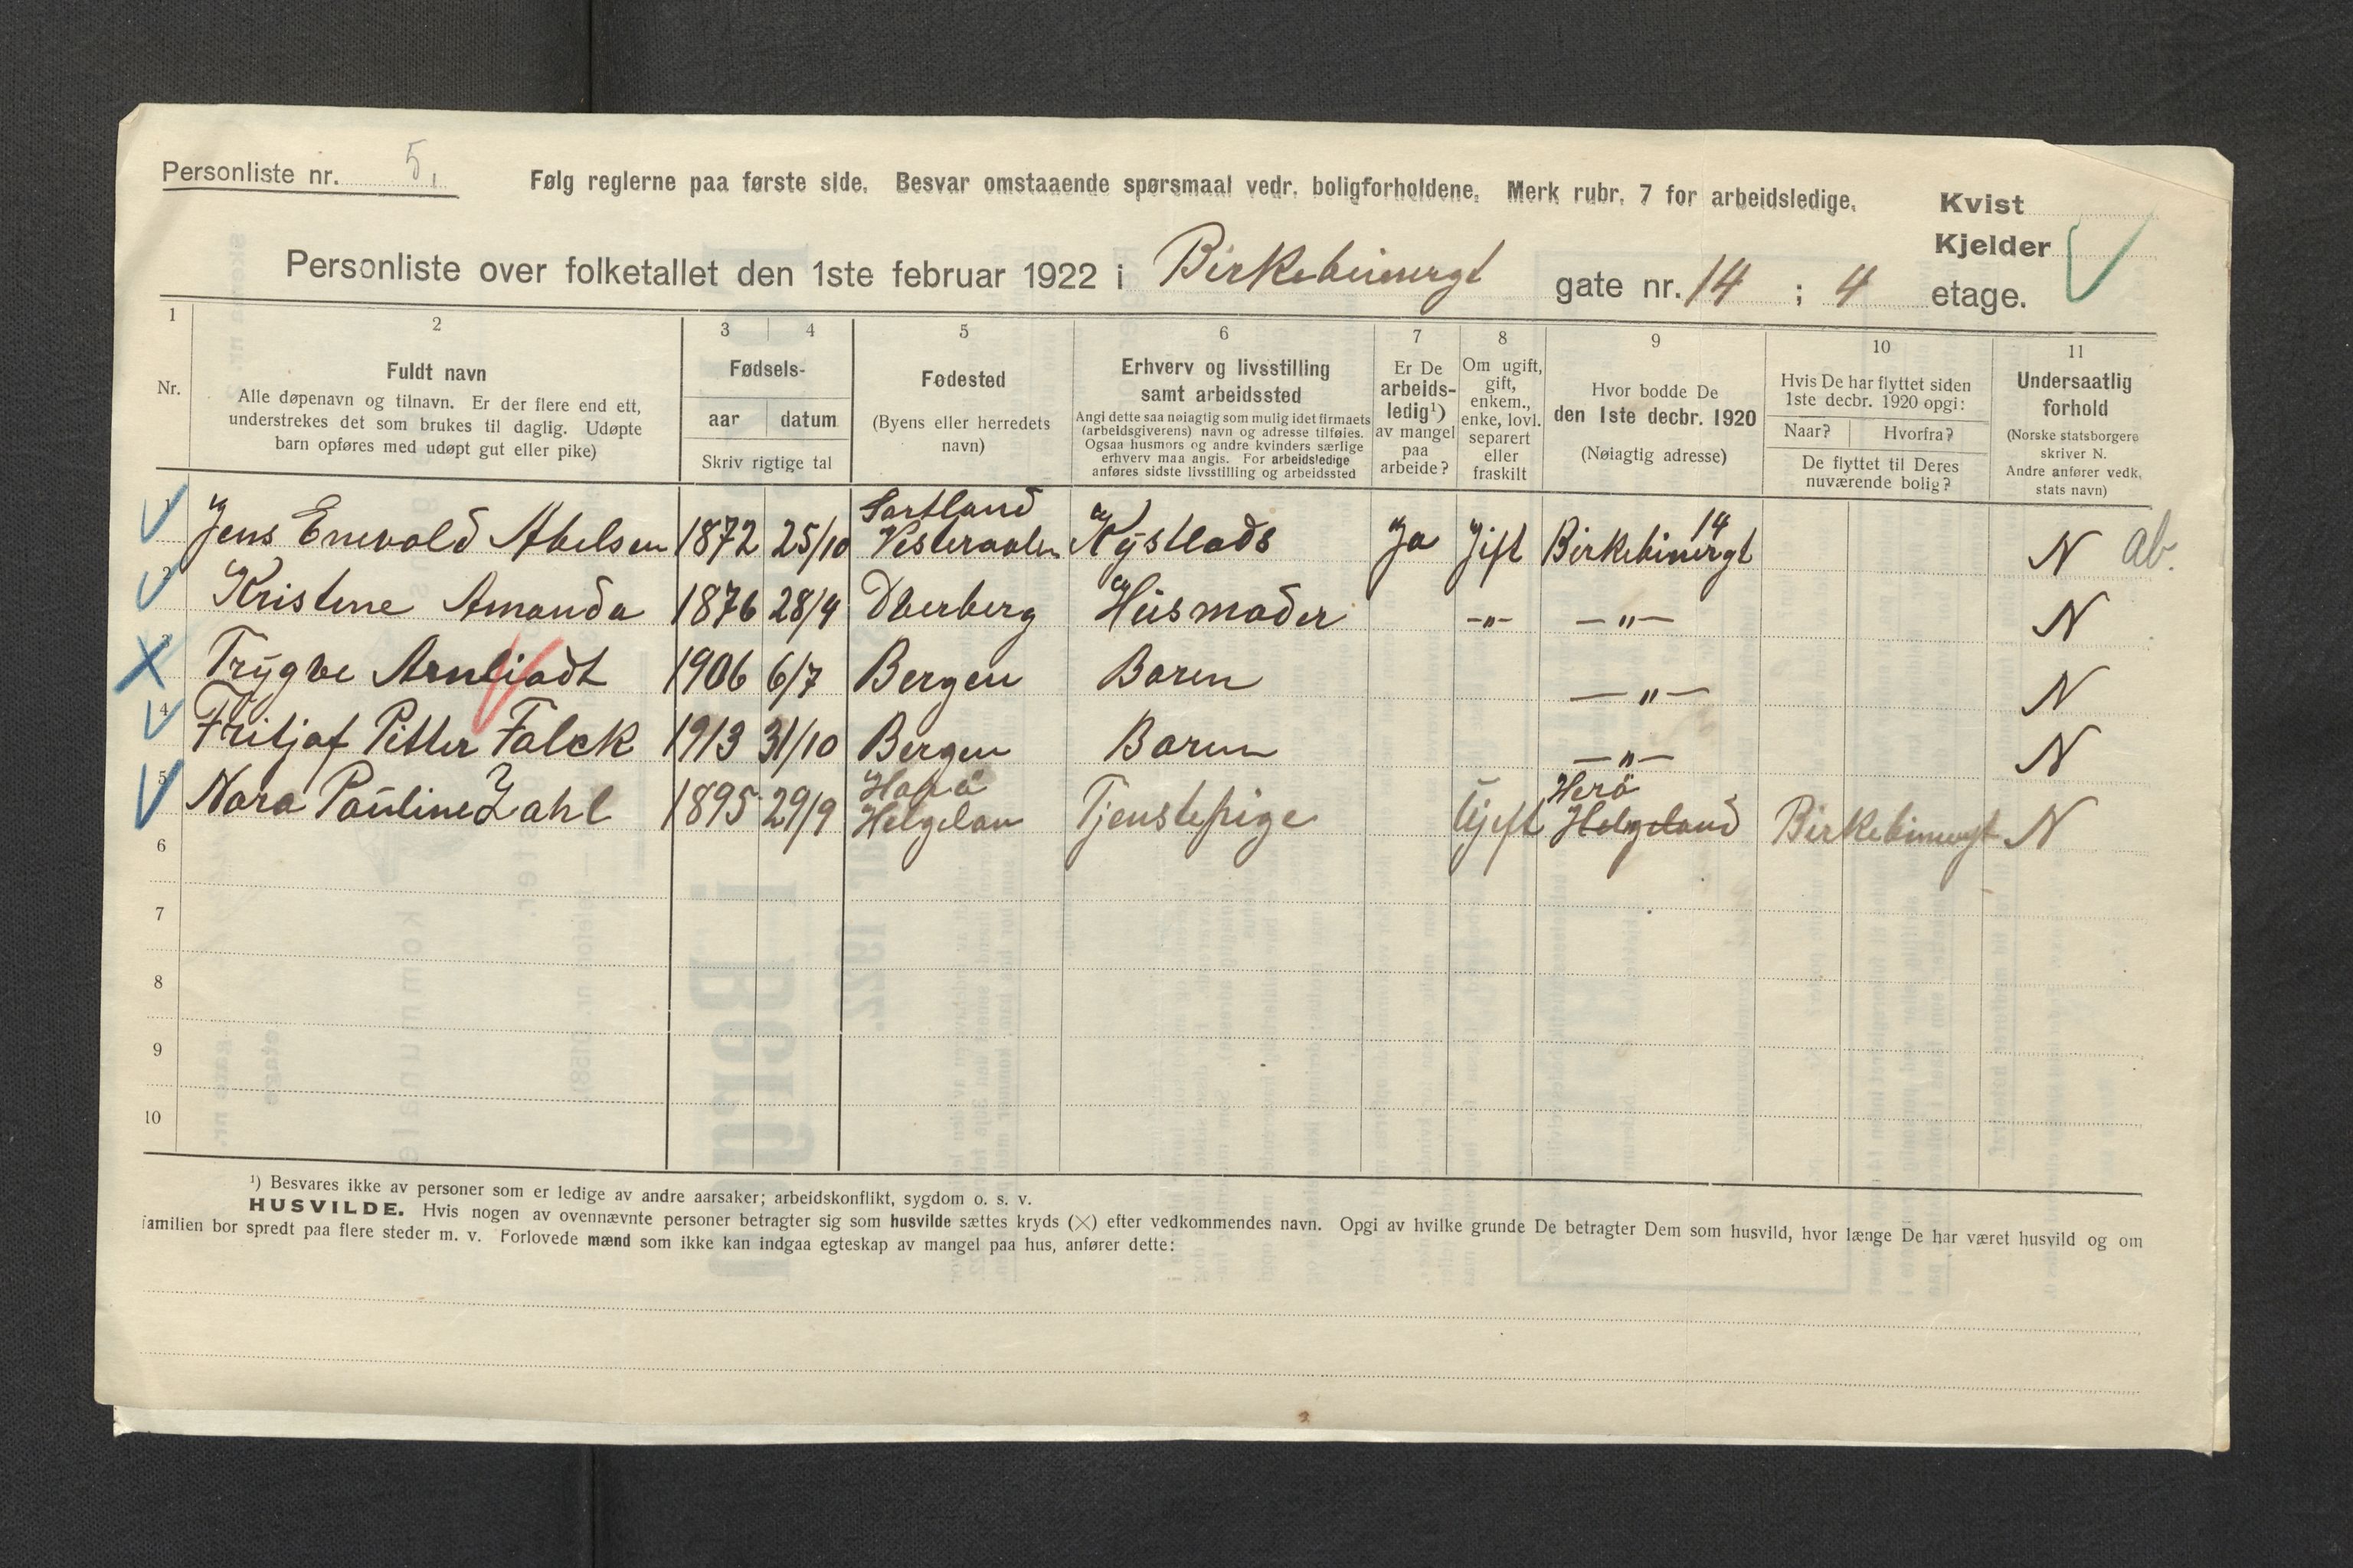 Personliste nr. 5,
Følg reglerne paa første side. Besvar omstaaende spørsmaal vedr. boligforholdene. Merk rubr. 7 for arbeidsledige.
Kvist
Kjelder
Personliste over folketallet den 1ste februar 1922 i Birkebeinergt gate nr. 14 ; 4 etage.
1 2 3 4 5 6 7 8 9 10 11
Nr.
Fuldt navn
Alle døpenavn og tilnavn. Er der flere end ett,
understrekes det som brukes til daglig. Udøpte
barn opføres med udøpt gut eller pike)
Fødsels-
aar datum
Skriv rigtige tal
Fødested
(Byens eller herredets
navn)
Erhverv og livsstilling
samt arbeidssted
Angi dette saa nøiagtig som mulig idet firmaets
(arbeidsgiverens) navn og adresse tilføies.
Ogsaa husmors og andre kvinders særlige
erhverv maa angis. For arbeidsledige
anføres sidste livsstilling og arbeidssted
Er De
arbeids-
ledig¹)
av mangel
paa
arbeide?
Om ugift,
gift,
enkem.,
enke, lovl.
separert
eller
fraskilt
Hvor bodde De
den 1ste decbr. 1920
(Nøiagtig adresse)
Hvis De har flyttet siden
1ste decbr. 1920 opgi:
Naar? Hvorfra?
De flyttet til Deres
nuværende bolig?
Undersaatlig
forhold
(Norske statsborgere
skriver N.
Andre anfører vedk.
stats navn)
1 Jens Enevold Abelsen 1872 25/10 Sortland Vesteraalen Kystlods Ja Gift Birkebeinergt 14 N ab.
2 Kristine Amanda 1876 28/4 Øverberg Husmoder -"- -"- N
3 Trygve 1906 6/7 Bergen Baren -"- N
4 Fritjof Pitter Falck 1913 31/10 Bergen Baren -"- N
5 Nora Pauline Zahl 1895 29/9 Helgelan Tjenstepige Ugift Herö Helgeland Birkebeinergt N
6
7
8
9
10
¹) Besvares ikke av personer som er ledige av andre aarsaker; arbeidskonflikt, sygdom o. s. v.
HUSVILDE. Hvis nogen av ovennævnte personer betragter sig som husvilde sættes kryds (×) efter vedkommendes navn. Opgi av hvilke grunde De betragter Dem som husvild, hvor længe De har været husvild og om
familien bor spredt paa flere steder m. v. Forlovede mænd som ikke kan indgaa egteskap av mangel paa hus, anfører dette: